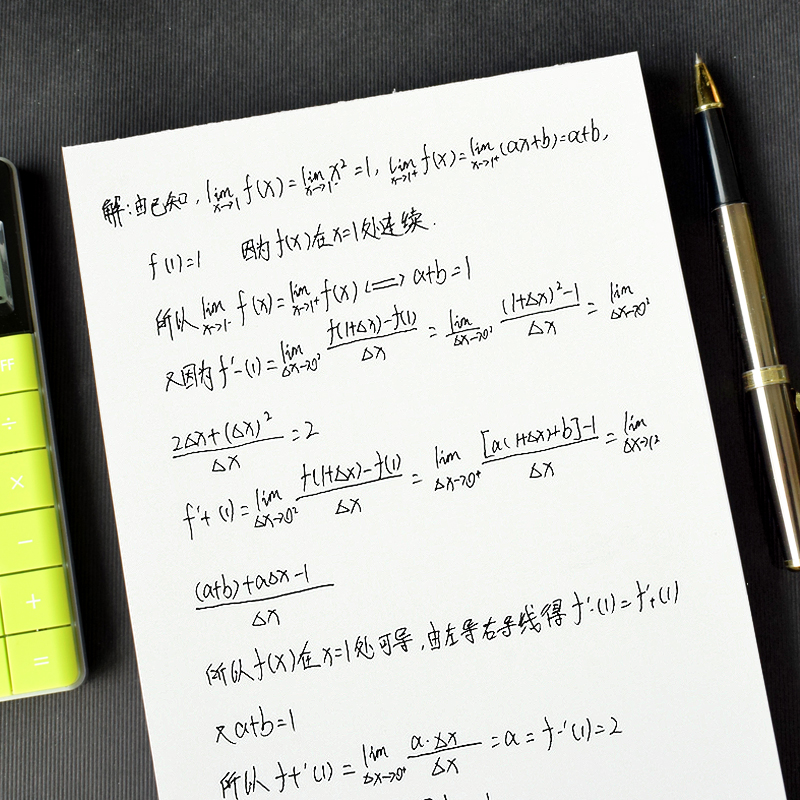 解:由已知, lim x→1⁻ f(x)=lim x→1⁻ x²=1, lim x→1⁺ f(x)=lim x→1⁺ (ax+b)=a+b,
f(1)=1 因为f(x)在x=1处连续.
所以 lim x→1⁻ f(x)=lim x→1⁺ f(x) ⟺ a+b=1
又因为f'-(1)=lim Δx→0² (f(1+Δx)-f(1))/Δx = lim Δx→0² ((1+Δx)²-1)/Δx = lim Δx→0²
(2Δx+(Δx)²)/Δx =2
f'+(1)=lim Δx→0² (f(1+Δx)-f(1))/Δx = lim Δx→0⁺ ([a(1+Δx)+b]-1)/Δx = lim Δx→1²
((a+b)+aΔx-1)/Δx
所以f(x)在x=1处可导,由左导右导线得f'-(1)=f'+(1)
又a+b=1
所以f+'(1)=lim Δx→0⁺ (a·Δx)/Δx =a=f-'(1)=2
FF
÷
×
−
+
=